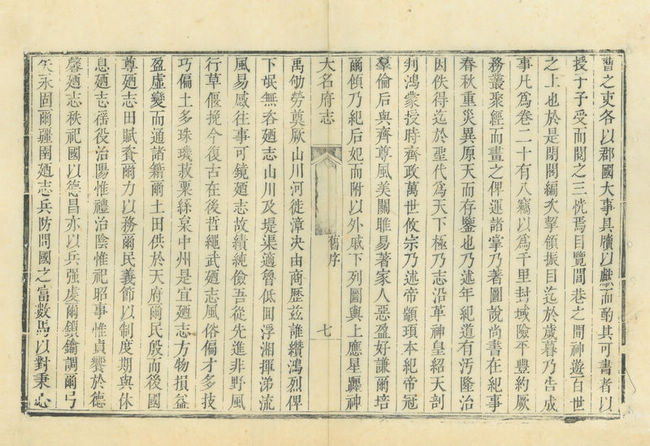 曹之吏各以郡國大事具牘以獻而酌其可書者以
授于予受而閱之三恍焉目覽閭巷之間神遊百世
之上也於是閉關編次挈領振目迄於歲暮乃告成
事凡爲卷二十有八竊以爲千里封域險不豐約厥
務叢衆經而畫之俾運諸掌乃著圖說尚書在紀事
春秋重災異原天而存鑒也乃述年紀道有汚隆治
因佚得迄於聖代爲天下極乃志沿革神皇紹天剖
判鴻蒙授時齊政萬世攸宗乃述帝顓頊本紀帝冠
羣倫后與齊尊風美關雎易著家人惡盈好謙爾培
爾傾乃紀后妃而附以外戚下列圖輿上應星躔神
大名府志
舊序
七
禹劬勞奠厥山川河徙漳决由商歷兹誰纘鴻烈俾
下氓無呑廼志山川及堤渠適魯低囬浮湘揮涕流
風易感往事可鏡廼志故績純儉吾從先進非野風
行草偃挽今復古在後哲繩武廼志風俗偏才多技
巧偏土多珠璣菽粟絲枲中州是宜廼志方物損益
盈虛變而通諸籍爾土田供於天府爾民殷而後國
尊廼志田賦賚爾力以務爾民義節以制度期與休
息廼志徭役治陽惟禮治陰惟祀昭事惟貞饗於德
馨廼志秩祀國以德昌亦以兵强虔爾鎖鑰調爾弓
矢永固爾疆圉廼志兵防問國之富數馬以對秉心